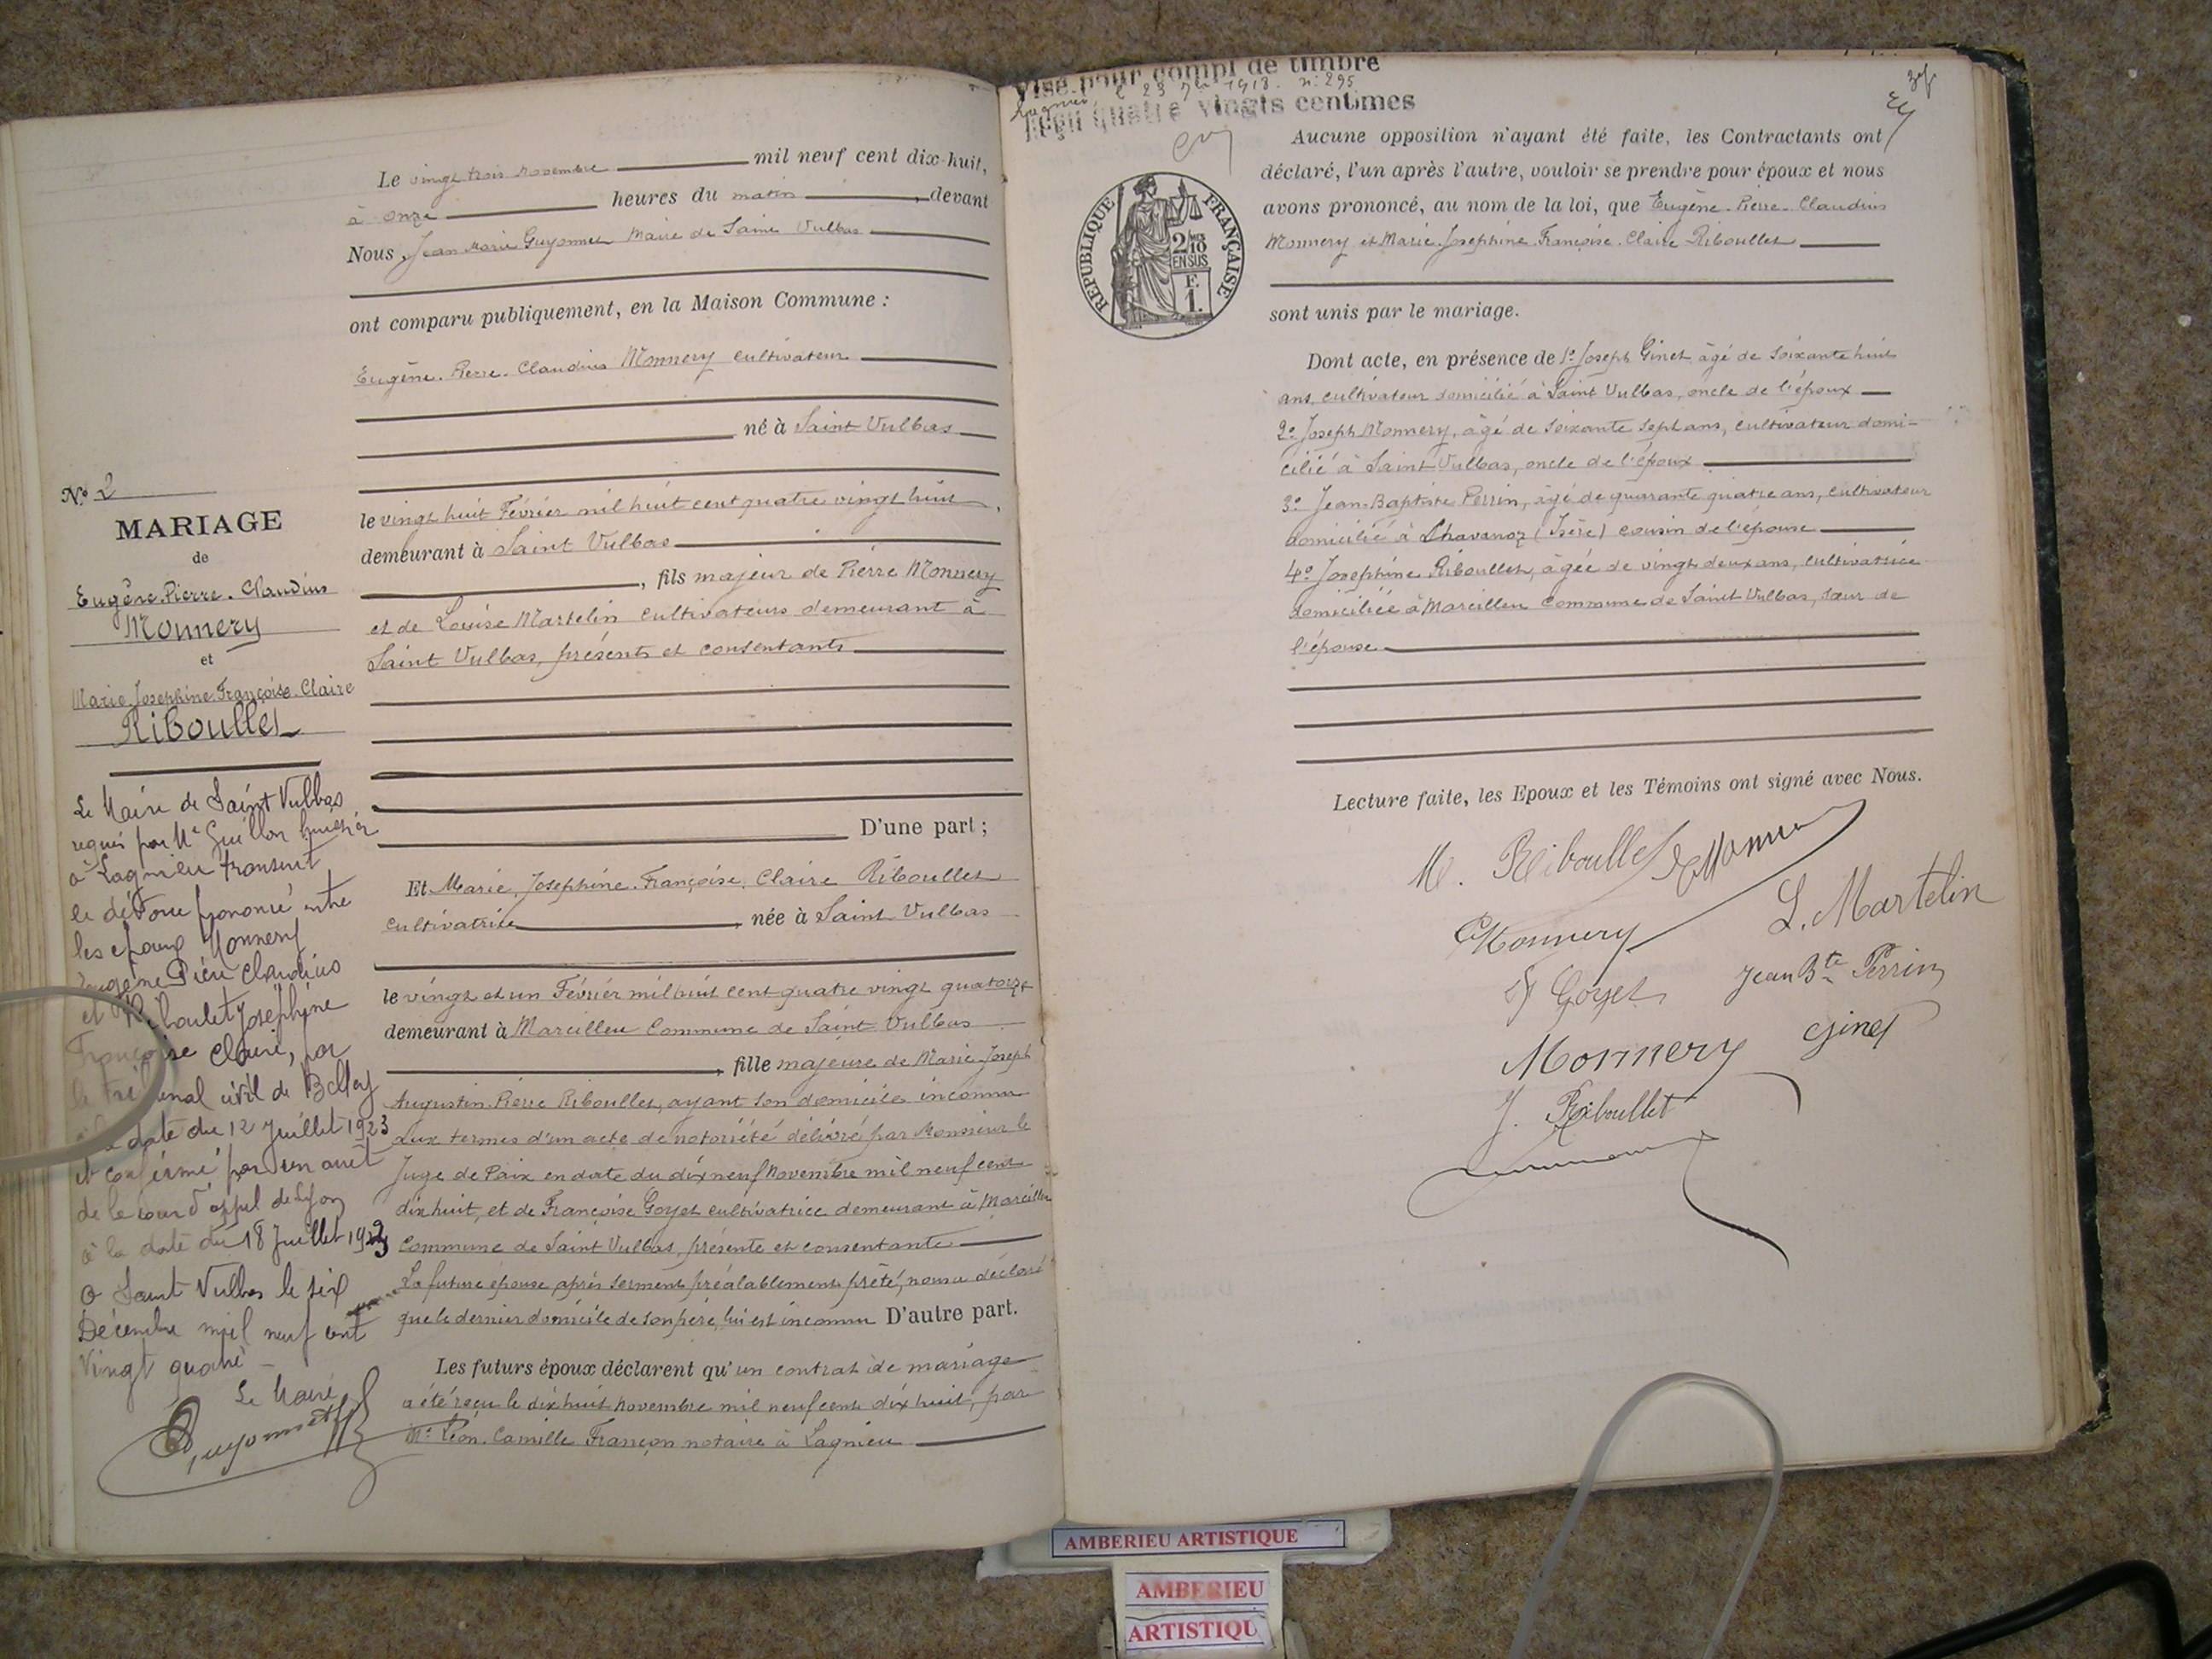 Le vingt trois Novembre mil neuf cent dix-huit,
à onze heures du matin, devant
Nous, Jean Marie Guyonnet Maire de Saint Vulbas
ont comparu publiquement, en la Maison Commune :
Eugène. Pierre. Claudius Monnery cultivateur
né à Saint Vulbas
le vingt huit Février mil huit cent quatre vingt huit,
demeurant à Saint Vulbas
, fils majeur de Pierre Monnery
et de Louise Martelin cultivateurs demeurant à
Saint Vulbas, présents et consentants
D'une part ;
Et Marie, Josephine. Françoise. Claire Riboullet
cultivatrice, née à Saint Vulbas
le vingt et un Février mil huit cent quatre vingt quatorze
demeurant à Marcilleu Commune de Saint Vulbas
, fille majeure de Marie-Joseph
Augustin. Pierre Riboullet, ayant son domicile inconnu
aux termes d'un acte de notoriété délivré par Monsieur le
Juge de Paix en date du dix neuf Novembre mil neuf cent
dix huit, et de Françoise Goyet cultivatrice demeurant à Marcilleu
Commune de Saint Vulbas, présente et consentante
La future épouse après serment préalablement prêté, nous a déclaré
que le dernier domicile de son père, lui est inconnu D'autre part.
Les futurs époux déclarent qu'un contrat de mariage
a été reçu le dix huit novembre mil neuf cent dix huit, par
Me Léon. Camille Françon notaire à Lagnieu
No 2
MARIAGE
de
Eugène. Pierre. Claudius
Monnery
et
Marie. Josephine. Françoise. Claire
Riboullet
Le Maire de Saint Vulbas
requis par Me Guillon huissier
à Lagnieu transcrit
le divorce prononcé entre
les époux Monnery
Eugène Pierre Claudius
et Riboulet Joséphine
Françoise Claire, par
le tribunal civil de Belley
à la date du 12 Juillet 1923
et confirmé par un arrêt
de la cour d'appel de Lyon
à la date du 18 Juillet 192
à Saint Vulbas le six
Décembre mil neuf cent
Vingt quatre
Le Maire
Guyonnet
Visé pour compl de timbre
Lagnieu, le 23 9bre 1918. n: 295
Reçu quatre vingts centimes
RÉPUBLIQUE FRANÇAISE
2 10
EN SUS
F.
1.
Aucune opposition n'ayant été faite, les Contractants ont
déclaré, l'un après l'autre, vouloir se prendre pour époux et nous
avons prononcé, au nom de la loi, que Eugène. Pierre. Claudius
Monnery et Marie. Josephine. Françoise. Claire Riboullet
sont unis par le mariage.
Dont acte, en présence de 1o Joseph Ginet âgé de soixante huit
ans, cultivateur domicilié à Saint Vulbas, oncle de l'époux
2o Joseph Monnery, âgé de soixante sept ans, cultivateur domi-
cilié à Saint Vulbas, oncle de l'époux
3o Jean-Baptiste Perrin, âgé de quarante quatre ans, cultivateur
domicilié à Chavanoz (Isère) cousin de l'épouse
4o Josephine Riboullet, âgée de vingt deux ans, cultivatrice
domiciliée à Marcilleu Commune de Saint Vulbas, sœur de
l'épouse
Lecture faite, les Epoux et les Témoins ont signé avec Nous.
M. Riboullet E Monnery
P Monnery L. Martelin
F Goyet Jean Bte Perrin
Monnery Ginet
J. Riboullet
AMBERIEU ARTISTIQUE
AMBERIEU
ARTISTIQU